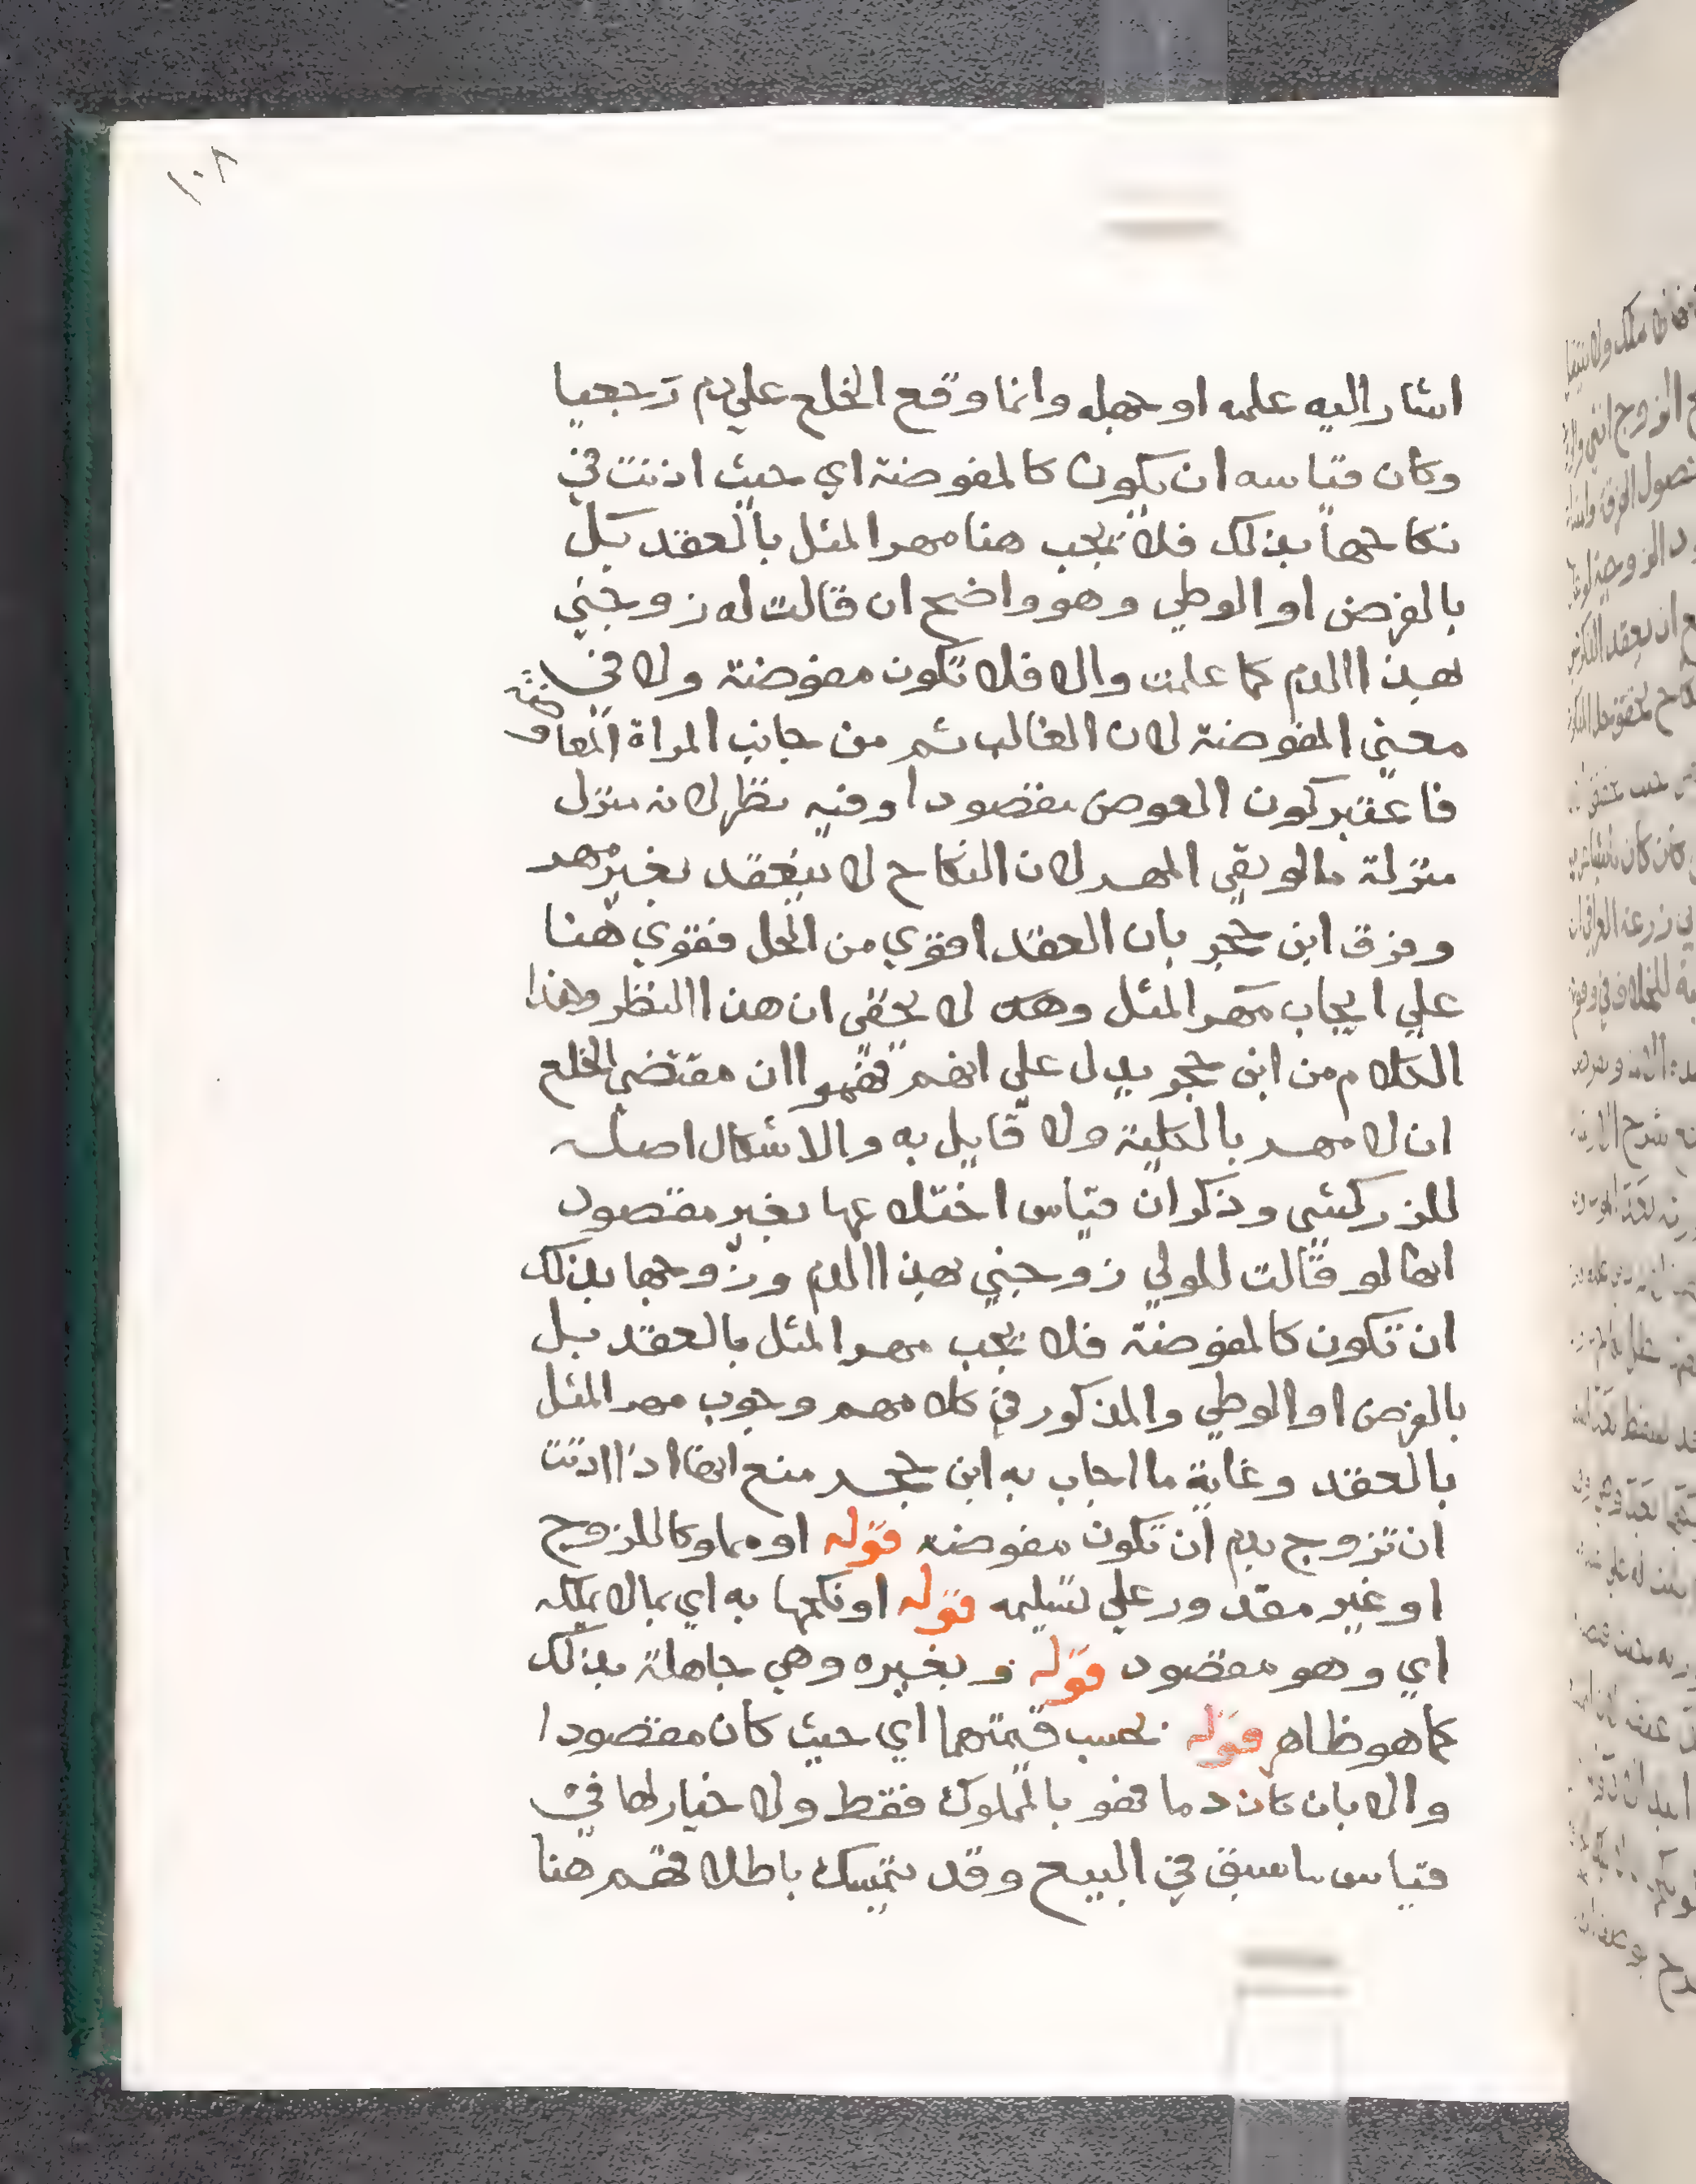 ١٠٨
اشار اليه علمه او جهله وانما وقع الخلع علي دم رجعيا
وكان قياسه ان يكون كالمفوضة اي حيث اذنت في
نكاحها بذلك فلا يجب هنا مهر المثل بالعقد بل
بالفرض او الوطي وهو واضح ان قالت له زوجني
بهذا الدم كما علمت والا فلا تكون مفوضة ولا في
معني المفوضة لان الغالب ثم من جانب المراة المعاوضة
فاعتبر كون العوض مقصودا وفيه نظر لانه منزل
منزلة مالو بقي المهر لان النكاح لا ينعقد بغير مهر
وفرق ابن حجر بان العقد اقوي من الحل فقوي هنا
علي ايجاب مهر المثل وهه لا يخفي ان هذا النظر وهذا
الكلام من ابن حجر يدل علي انهم فهموا ان مقتضي الخلع
ان لا مهر بالكلية ولا قايل به والاشكال اصله
للزركشي وذكر ان قياس اختلاعها بغير مقصود
انها لو قالت للولي زوجني بهذا الدم وزوجها بذلك
ان تكون كالمفوضة فلا يجب مهر المثل بالعقد بل
بالفرض او الوطي والمذكور في كلامهم وجوب مهر المثل
بالعقد وغاية ما اجاب به ابن حجر منع انها اذا اذنت
ان تزوج بدم ان تكون مفوضة قوله او مملوكا للزوج
او غير مقدور علي تسليمه قوله او نكحها به اي بمالا يملكه
اي وهو مقصود قوله وبغيره وهي جاهلة بذلك
كما هو ظاهر قوله بحسب قيمتهما اي حيث كان مقصودا
والا بان كان دما فهو بالمملوك فقط ولا خيار لها في
قياس ما سبق في البيع وقد يتمسك باطلاقهم هنا